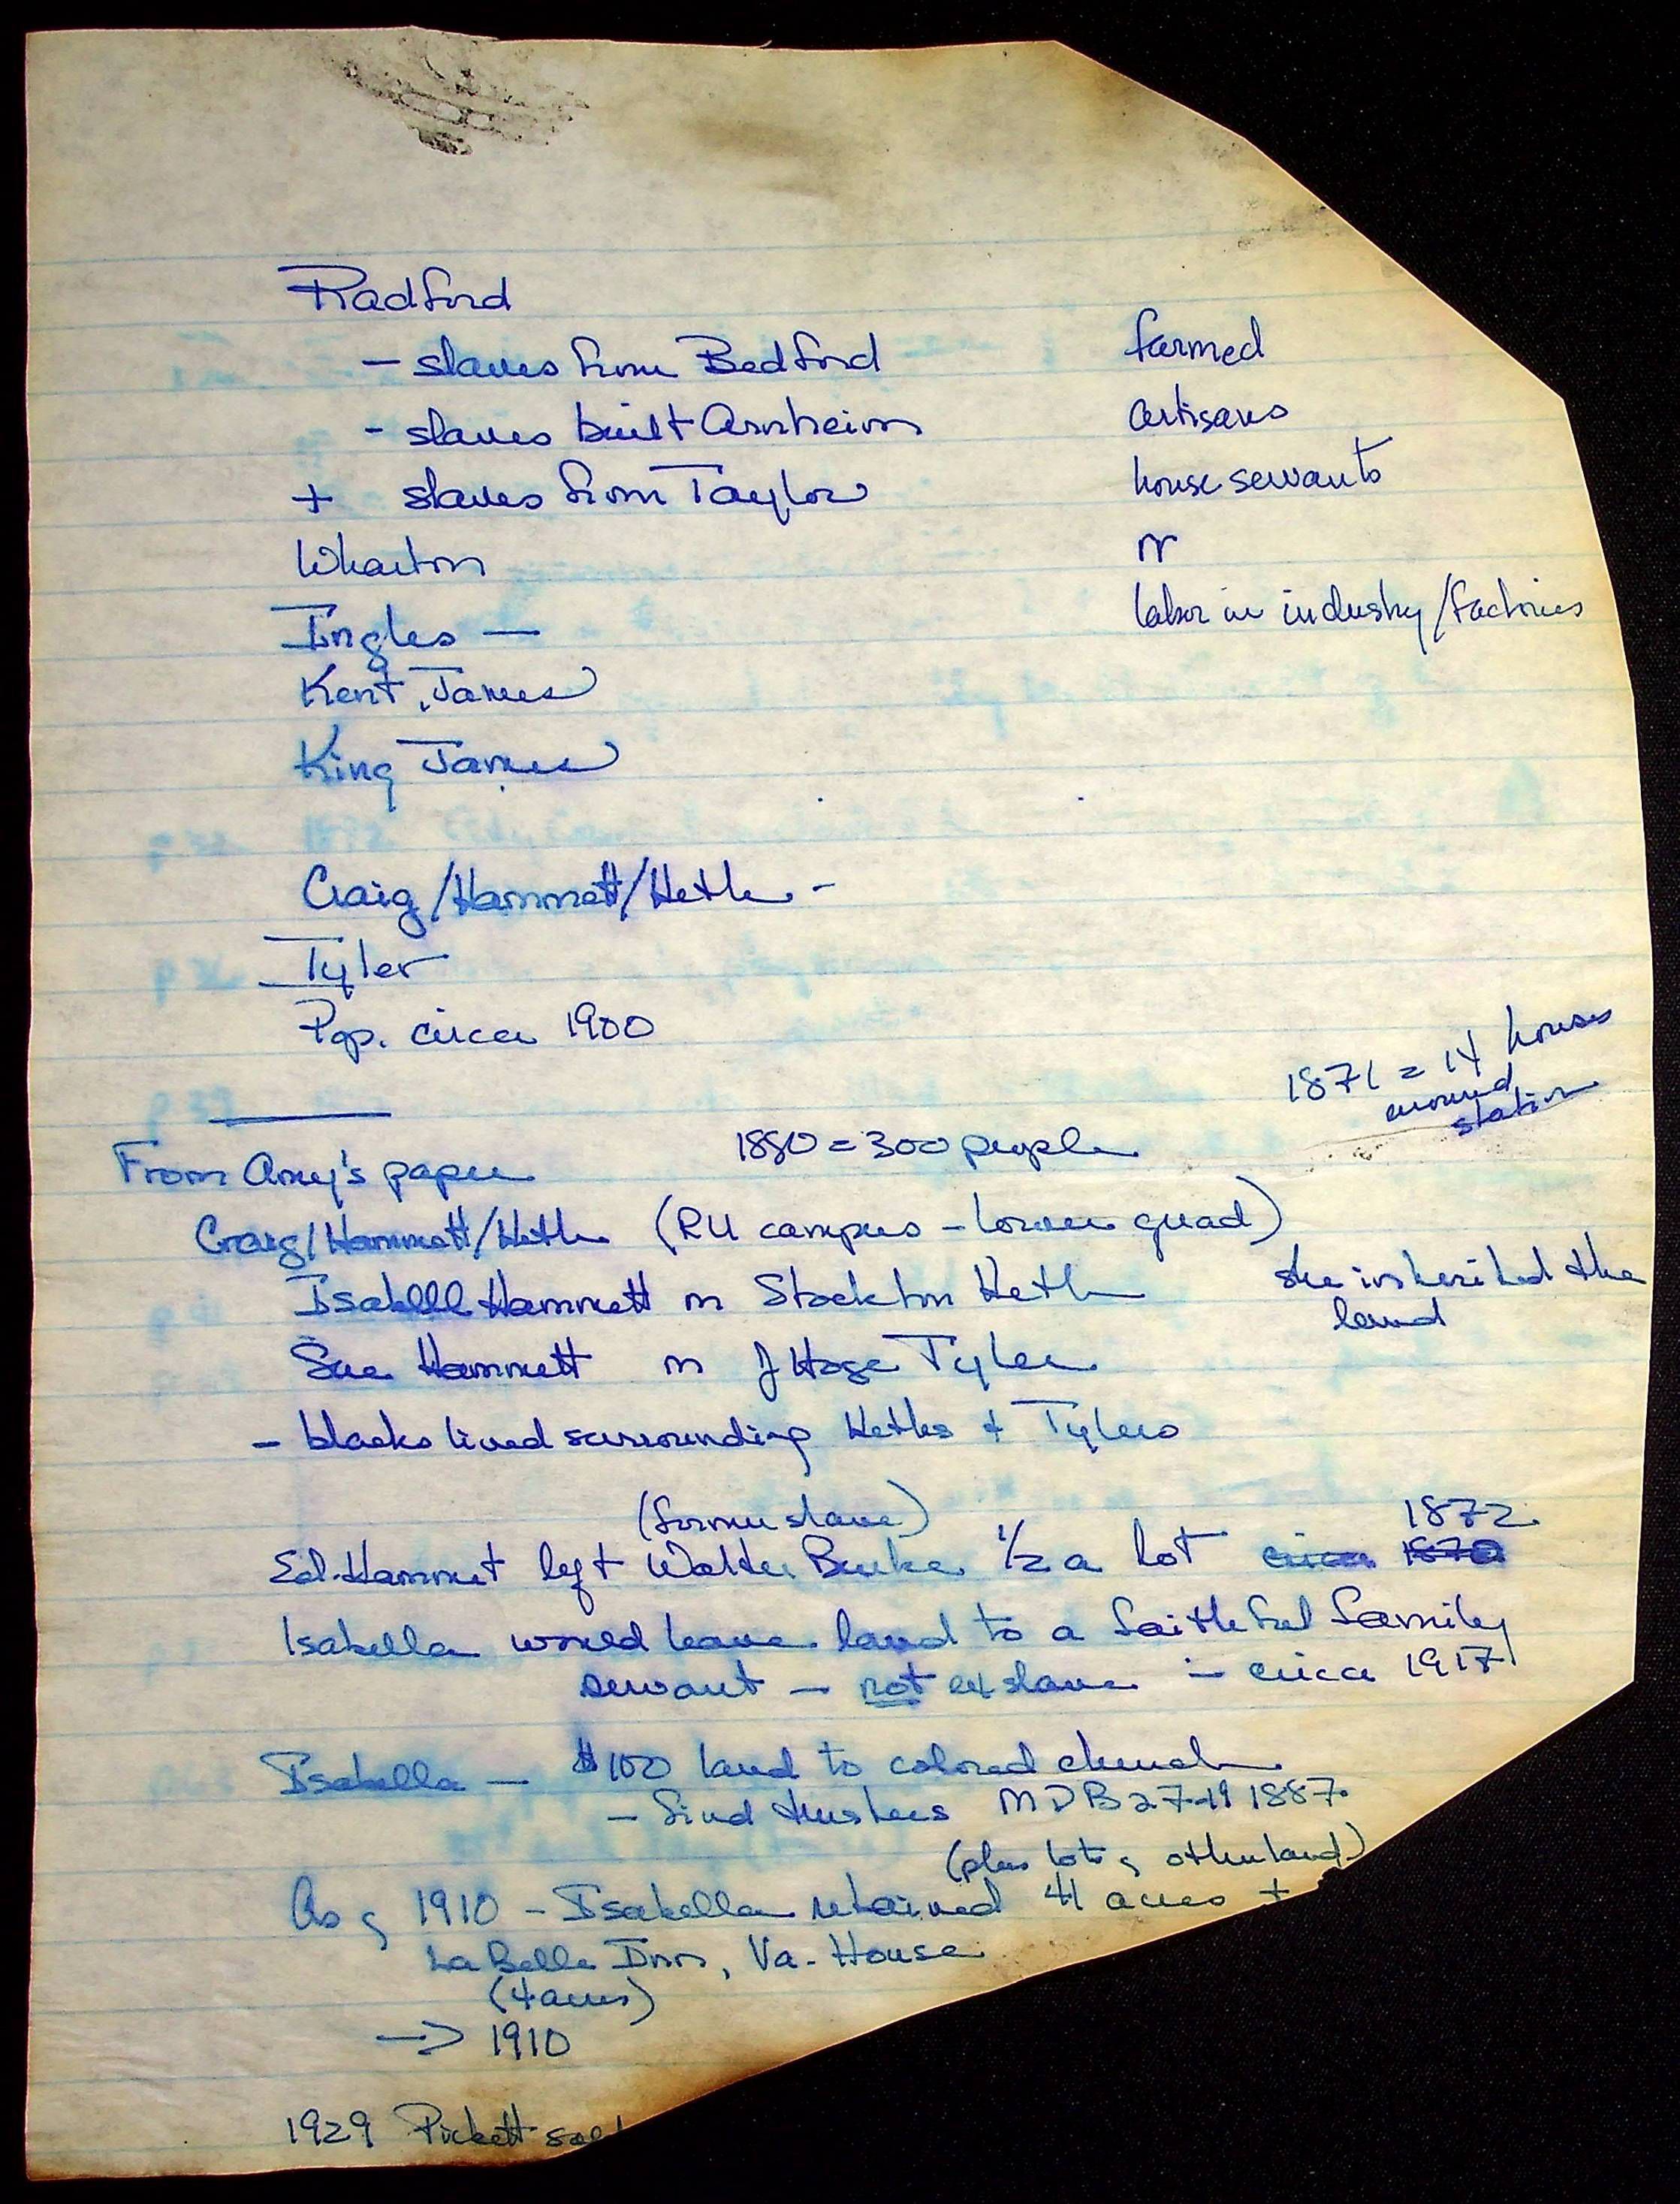 Radford
- slaves from Bedford farmed
- slaves built Arnheim artisans
+ slaves from Taylor house servants
Wharton or
Ingles — labor in industry/factories
Kent, James
King James
Craig/Hammett/Heth -
Tyler
Pop. circa 1900
1871 = 14 houses
around
station
1880 = 300 people
From Amy's paper
Craig/Hammett/Heth (RU campus - lower quad)
Isabelll Hammett m Stockton Heth she inherited the
land
Sue Hammett m J Hoge Tyler
- blacks lived surrounding Heths + Tylers
(former slave) 1872
Ed. Hammet left Walter Burke 1/2 a lot circa 1870
Isabella would leave land to a faithful family
servant — not ex slave - circa 1917
Isabella — $100 land to colored church
- find trustees MDB 27-19 1887
(plus lots of other land)
As of 1910 - Isabella retained 41 acres +
La Belle Inn, Va. House
(4 acres)
-> 1910
1929 Pickett